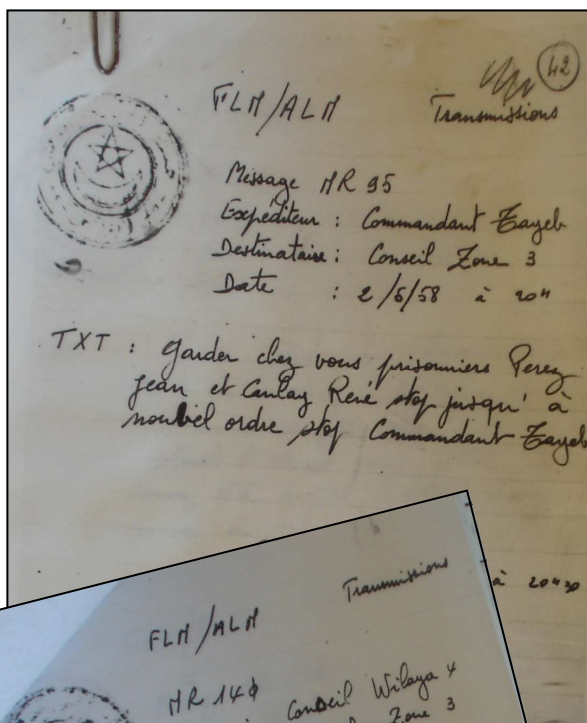 42
FLN/ALN Transmissions
Message NR 95
Expéditeur : Commandant Tayeb
Destinataire : Conseil Zone 3
Date : 2/5/58 à 20H
TXT : garder chez vous prisonniers Perez
Jean et René stop jusqu'à
nouvel ordre stop Commandant Tayeb
à 20H30
Transmissions
FLN/ALN
NR 140
Conseil Wilaya 4
Zone 3